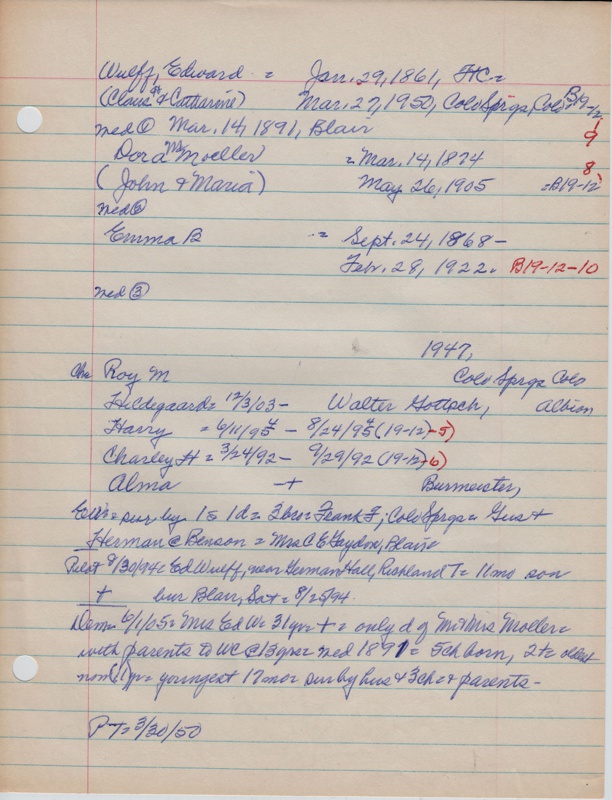 Wulff, Edward = Jan. 29, 1861, HC=
(Claus & Catharine) Mar. 27, 1950, Colo Sprgs, Colo= B19-12-
9
med ① Mar. 14, 1891, Blair
Dora M Moeller = Mar. 14, 1874 8
(John & Maria) May 26, 1905 =B19-12
med ②
Emma B = Sept. 24, 1868-
Febr. 28, 1922= B19-12-10
med ③
1947,
Ch= Roy M Colo Sprgs Colo
Hildegaard= 12/3/03- Walter Gottsch, Albion
Harry = 6/11/94 - 8/24/94 (19-12-5)
Charley H = 3/24/92- 9/29/92 (19-12-6)
Alma -+ Burmeister,
sur by 1s 1d= 3bro= Frank F, Colo Sprgs= Gus &
Herman @ Benson = Mrs C E Gaydou, Blair
Pilot 8/30/94: Ed Wulff, near German Hall, Richland T= 11mo son
+ bur Blair, Sat= 8/25/94.
Dem= 6/1/05= Mrs Ed W= 31yrs + = only d of Mr Mrs Moeller=
with parents to WC @ 13yrs= med 1891= 5ch born, 2+= oldest
now 11yr= youngest 17mo= sur by hus & 3ch= & parents-
PT= 3/30/50